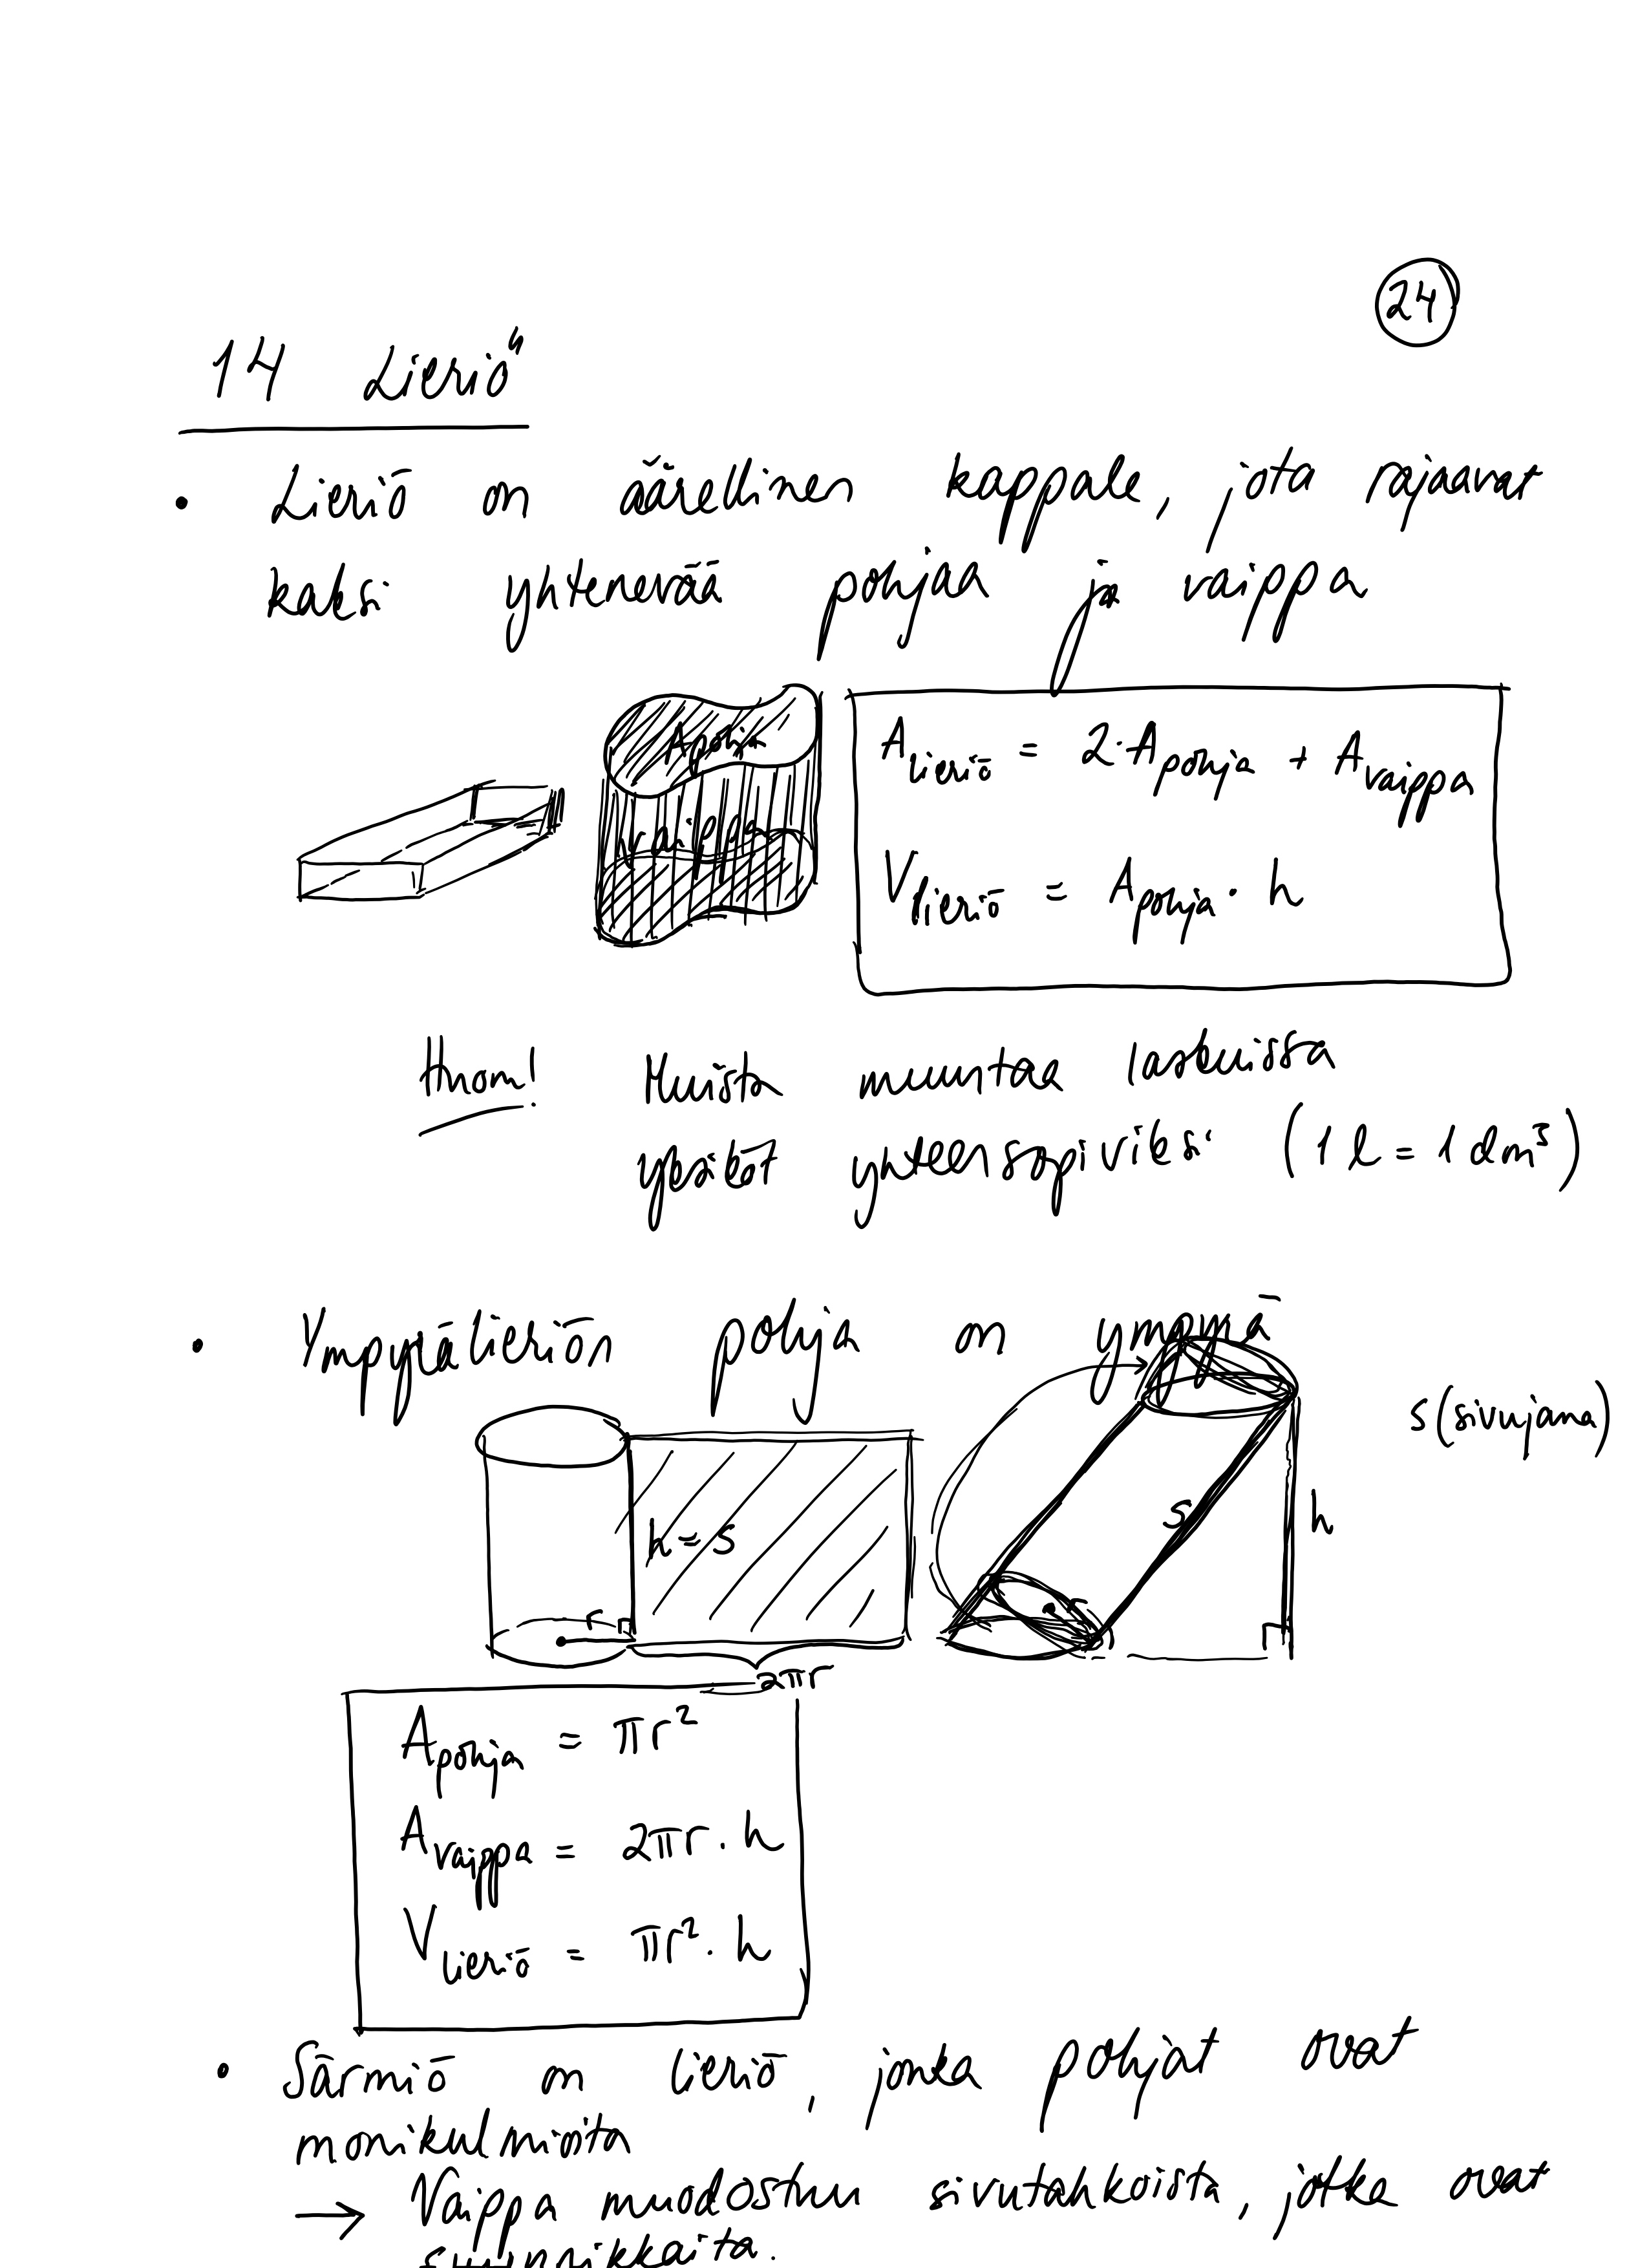 24
14 Lieriö
• Lieriö on äärellinen kappale, jota rajaavat
kaksi yhtenevää pohjaa ja vaippa
Apohja
vaippa
Alieriö = 2·Apohja + Avaippa
Vlieriö = Apohja · h
Huom! Muista muuntaa laskuissa
yksiköt yhteensopiviksi (1 l = 1 dm³)
• Ympyrälieriön pohja on ympyrä
s (sivujana)
h = s
r
2πr
s
h
r
Apohja = πr²
Avaippa = 2πr · h
Vlieriö = πr² · h
• Särmiö on lieriö, jonka pohjat ovat
monikulmioita
→ Vaippa muodostuu sivutahkoista, jotka ovat
suunnikkaita.